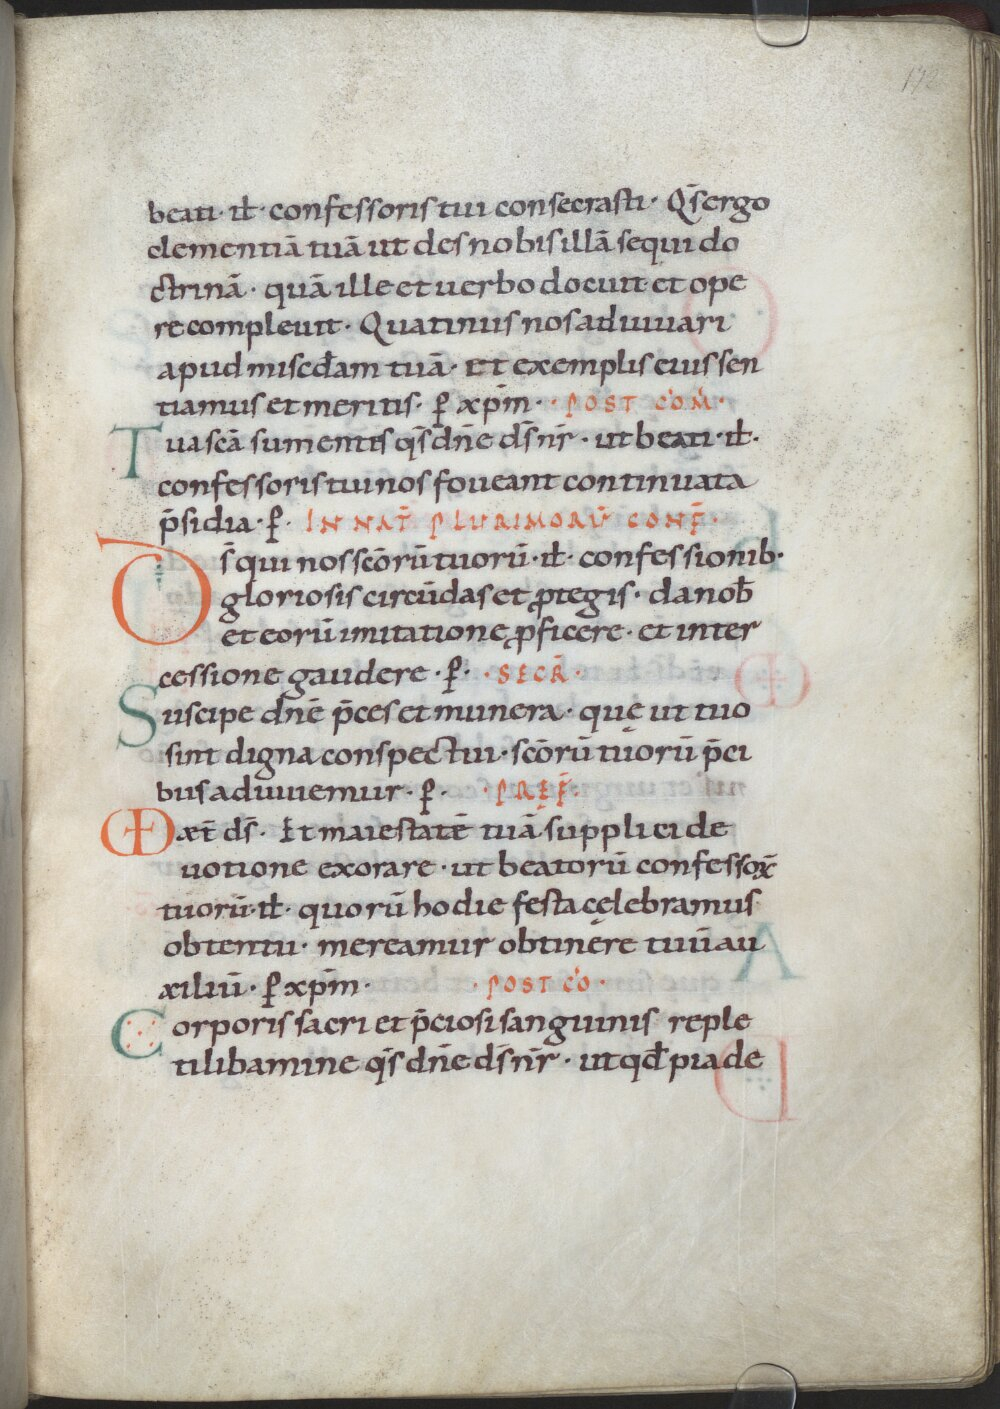 172
beati · ił · confessoris tui consecrasti · Q̄s ergo
clementiā tuā ut des nobis illā sequi do
ctrinā · quā ille et uerbo docuit et ope
re compleuit · Quatinus nos adiuuari
apud misc̄dam tuā · et exemplis eius sen
tiamus et meritis · ꝑ xp̄m · · POST COM̄ ·
Tua sc̄a sumentes q̄s dn̄e ds̄ nr̄ · ut beati · ił ·
confessoris tui nos foueant continuata
p̄sidia · ꝑ · IN NAT̄ PLURIMORŪ CONF̄ ·
Ds̄ qui nos sc̄orū tuorū · ił · confessionib ·
gloriosis circūdas et ꝓtegis · da nob̄
et eorū imitatione ꝓficere · et inter
cessione gaudere · ꝑ · · SECR̄ ·
Suscipe dn̄e p̄ces et munera · quę ut tuo
sint digna conspectui · sc̄orū tuorū p̄ci
bus adiuuemur · ꝑ · · PREF̄ ·
VD æt̄ ds̄ · Et maiestatē tuā supplici de
uotione exorare · ut beatorū confessoꝝ
tuorū · ił · quorū hodie festa cęlebramus
obtentu · mereamur obtinere tuū au
xiliū · ꝑ xp̄m · · POST CO ·
Corporis sacri et p̄ciosi sanguinis reple
ti libamine q̄s dn̄e ds̄ nr̄ · ut qd̄ pia de